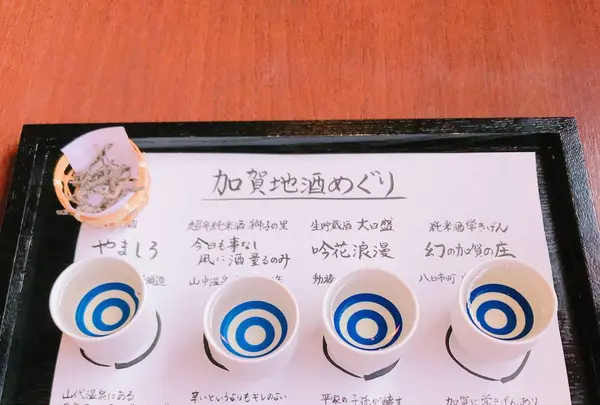 加賀地酒めぐり
超辛純米酒 獅子の里
生貯蔵酒 大日盛
純米酒 常きげん
やましろ
今日も事なし
凩に酒量るのみ
吟花浪漫
幻の加賀の庄
山中温
動橋
八日市町
山代温泉にある
辛いというよりもキレのよい
平家の子孫が醸す
加賀に常きげんあり